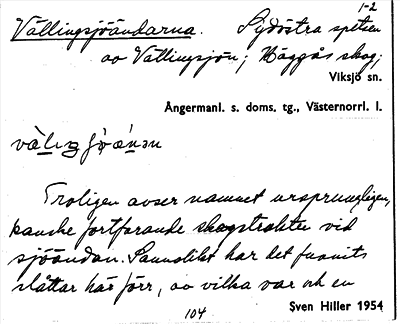 1-2
Vällingsjöändarna. Sydöstra spetsen
av Vällingsjön; Häggås skog;
Viksjö sn.
Ångermanl. s. doms. tg., Västernorrl. l.
Troligen avser namnet ursprungligen,
kanske fortfarande skogstrakten vid
sjöändan. Sannolikt har det funnits
slåttar här förr, av vilka var och en
104
Sven Hiller 1954